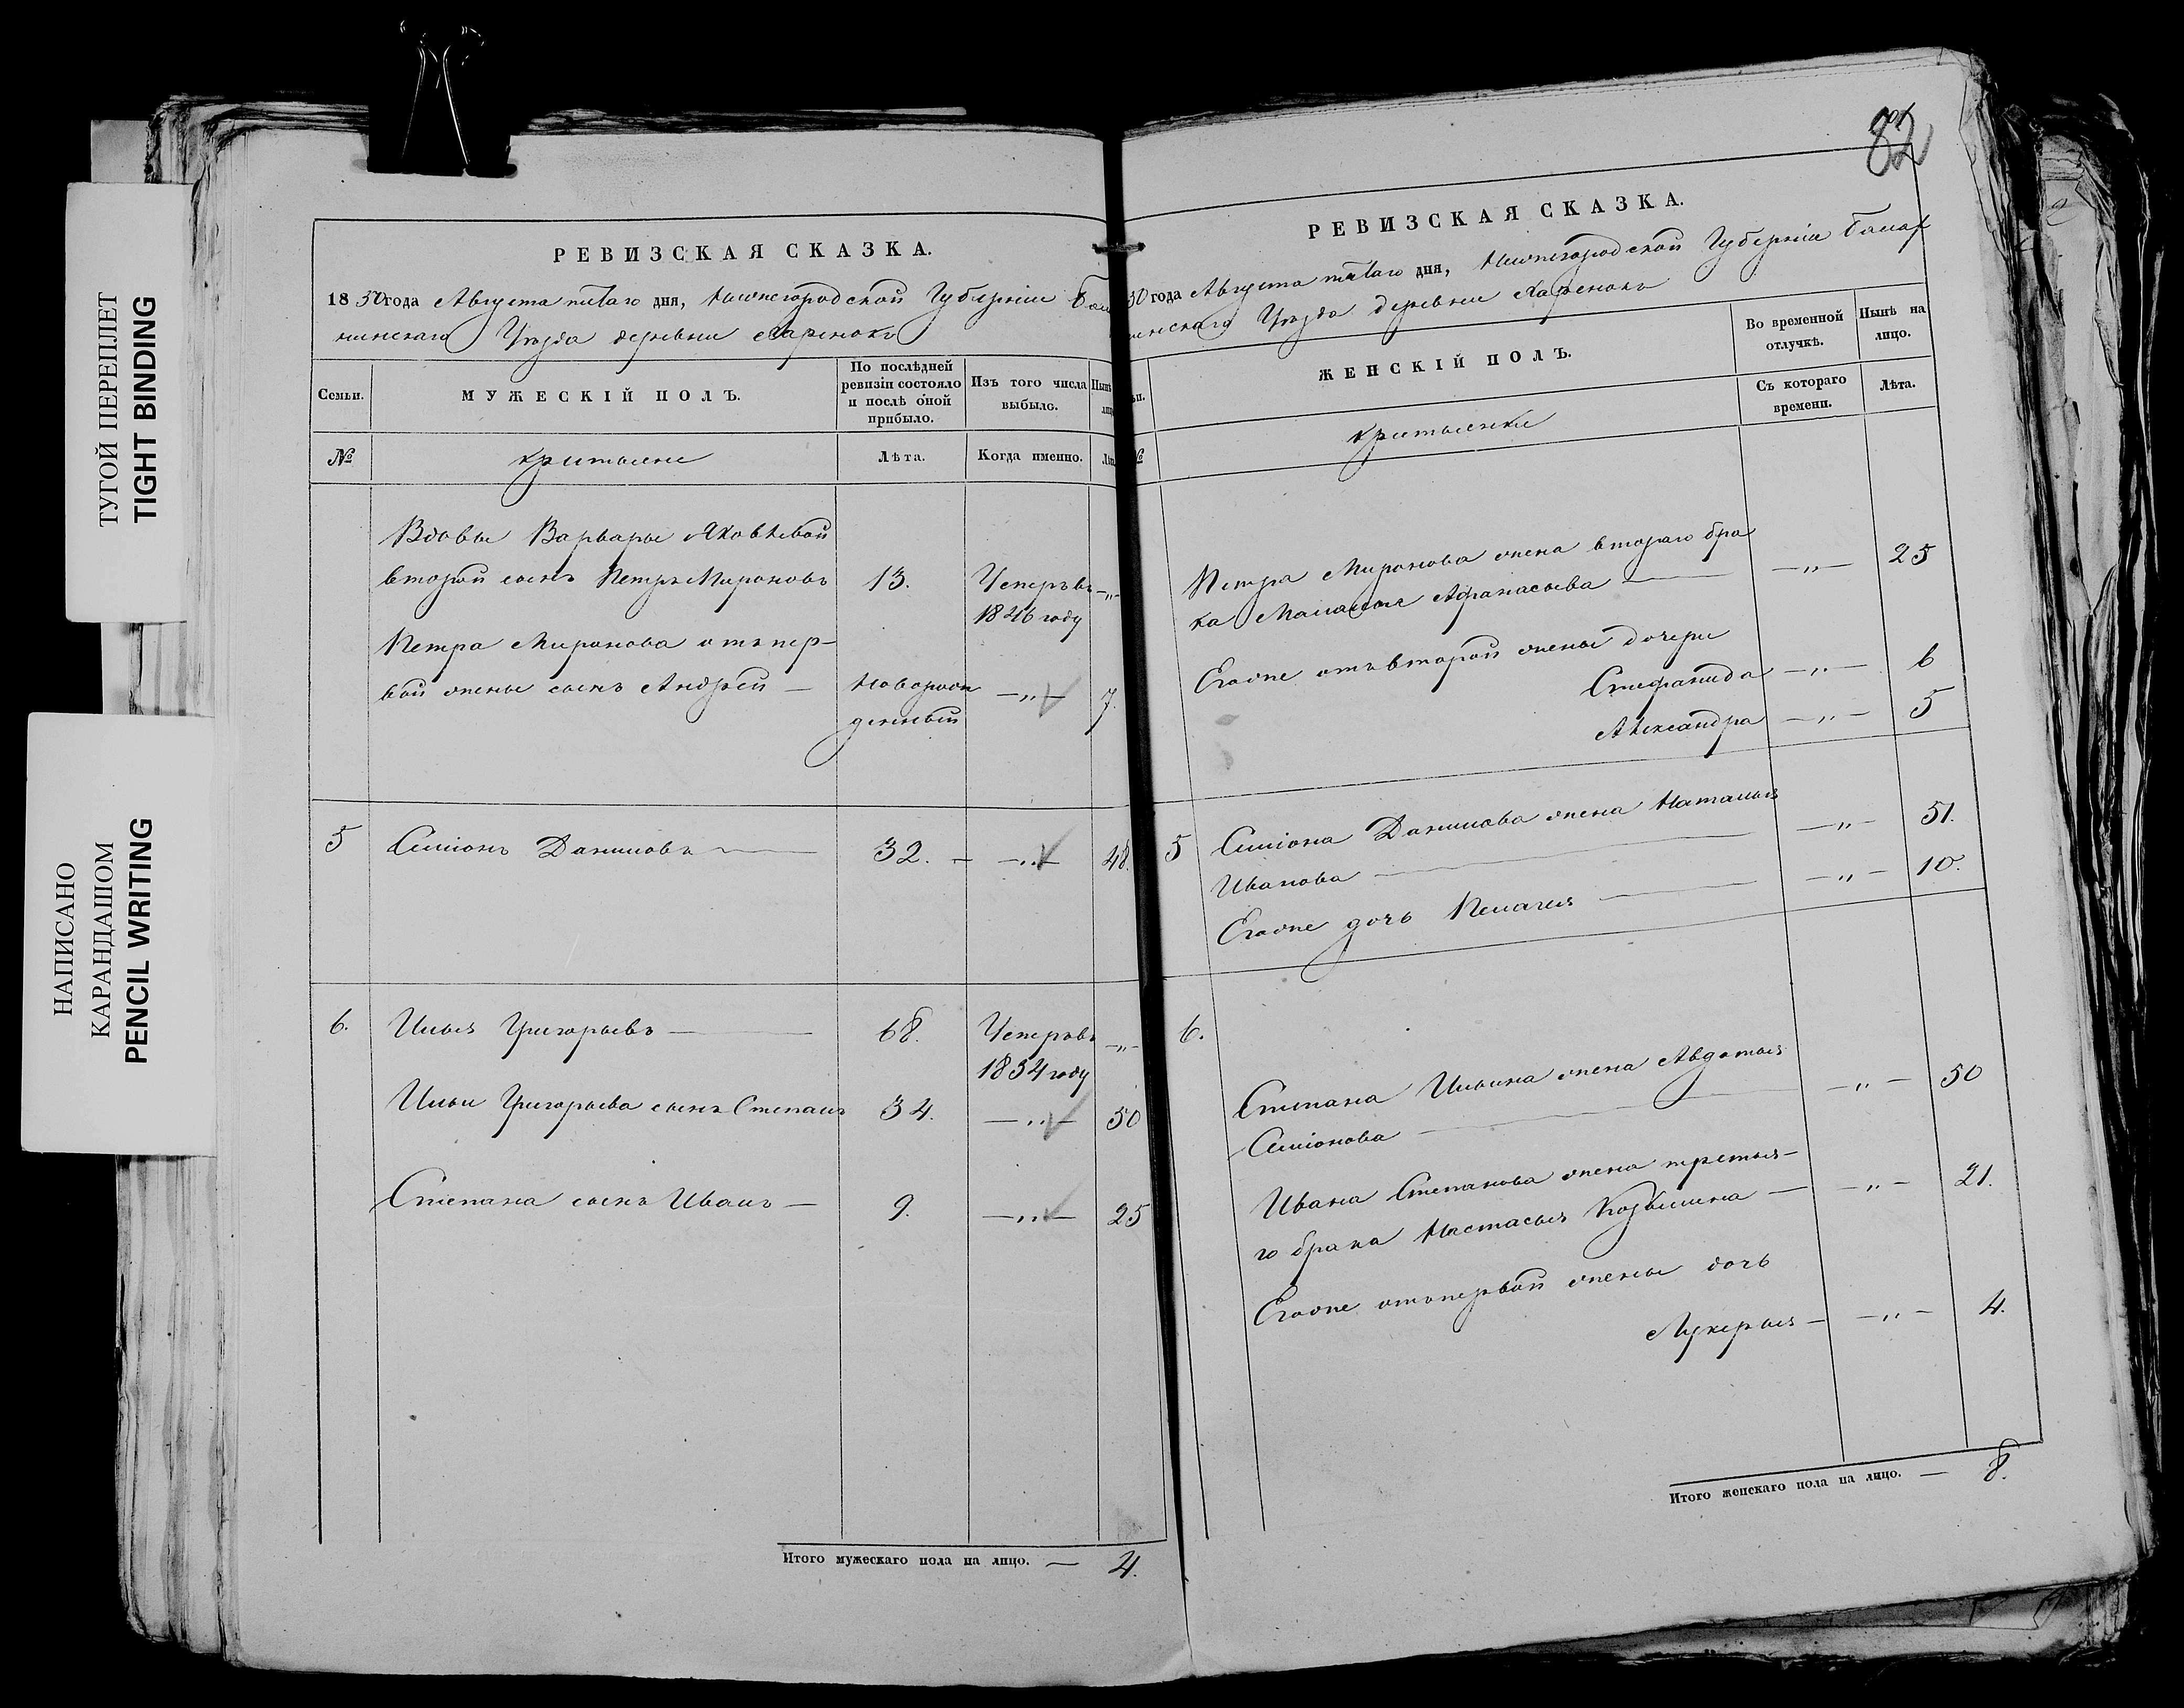 ТУГОЙ ПЕРЕПЛЕТ
TIGHT BINDING
НАПИСАНО
КАРАНДАШОМ
PENCIL WRITING
РЕВИЗСКАЯ СКАЗКА.
1850 года Августа пятаго дня, Нижегородской Губерніи Бала
хнинскаго Уѣзда деревни
Семьи.
МУЖЕСКІЙ ПОЛЪ.
По послѣдней ревизіи состояло и послѣ оной прибыло.
Изъ того числа выбыло.
№
крестьяне
Лѣта.
Когда именно.
Вдовы Варвары Яковлевой
второй сынъ Петръ Мироновъ 13. Умеръ въ —„—
1846 году
Петра Миронова отъ пер-
вой жены сынъ Андрей — новорож —„— 7.
денный
5 Симіонъ Даниловъ — 32. — —„— 48.
6. Илья Григорьевъ — 68. Умеръ въ —„—
1834 году
Ильи Григорьева сынъ Степанъ 34. —„— 50
Степана сынъ Иванъ — 9. —„— 25
Итого мужескаго пола на лицо. — 4.
82
РЕВИЗСКАЯ СКАЗКА.
50 года Августа пятаго дня, Нижегородской Губерніи Балах
нинскаго Уѣзда деревни
ЖЕНСКІЙ ПОЛЪ.
Во временной отлучкѣ.
Нынѣ на лицо.
Съ котораго времени.
Лѣта.
№
крестьянки
Петра Миронова жена втораго бра
ка Маланья Афанасьева — —„— 25
Егоже отъ второй жены дочери
Стефанида —„— 6
Александра —„— 5
5 Симіона Данилова жена Наталья
Иванова — —„— 51.
Егоже дочь Пелагея — —„— 10.
6.
Степана Ильина жена Авдотья
Симіонова — —„— 50
Ивана Степанова жена третья-
го брака Настасья Козьмина — —„— 21.
Егоже отъ первой жены дочь
Лукерья — —„— 4.
Итого женскаго пола на лицо. — 8.